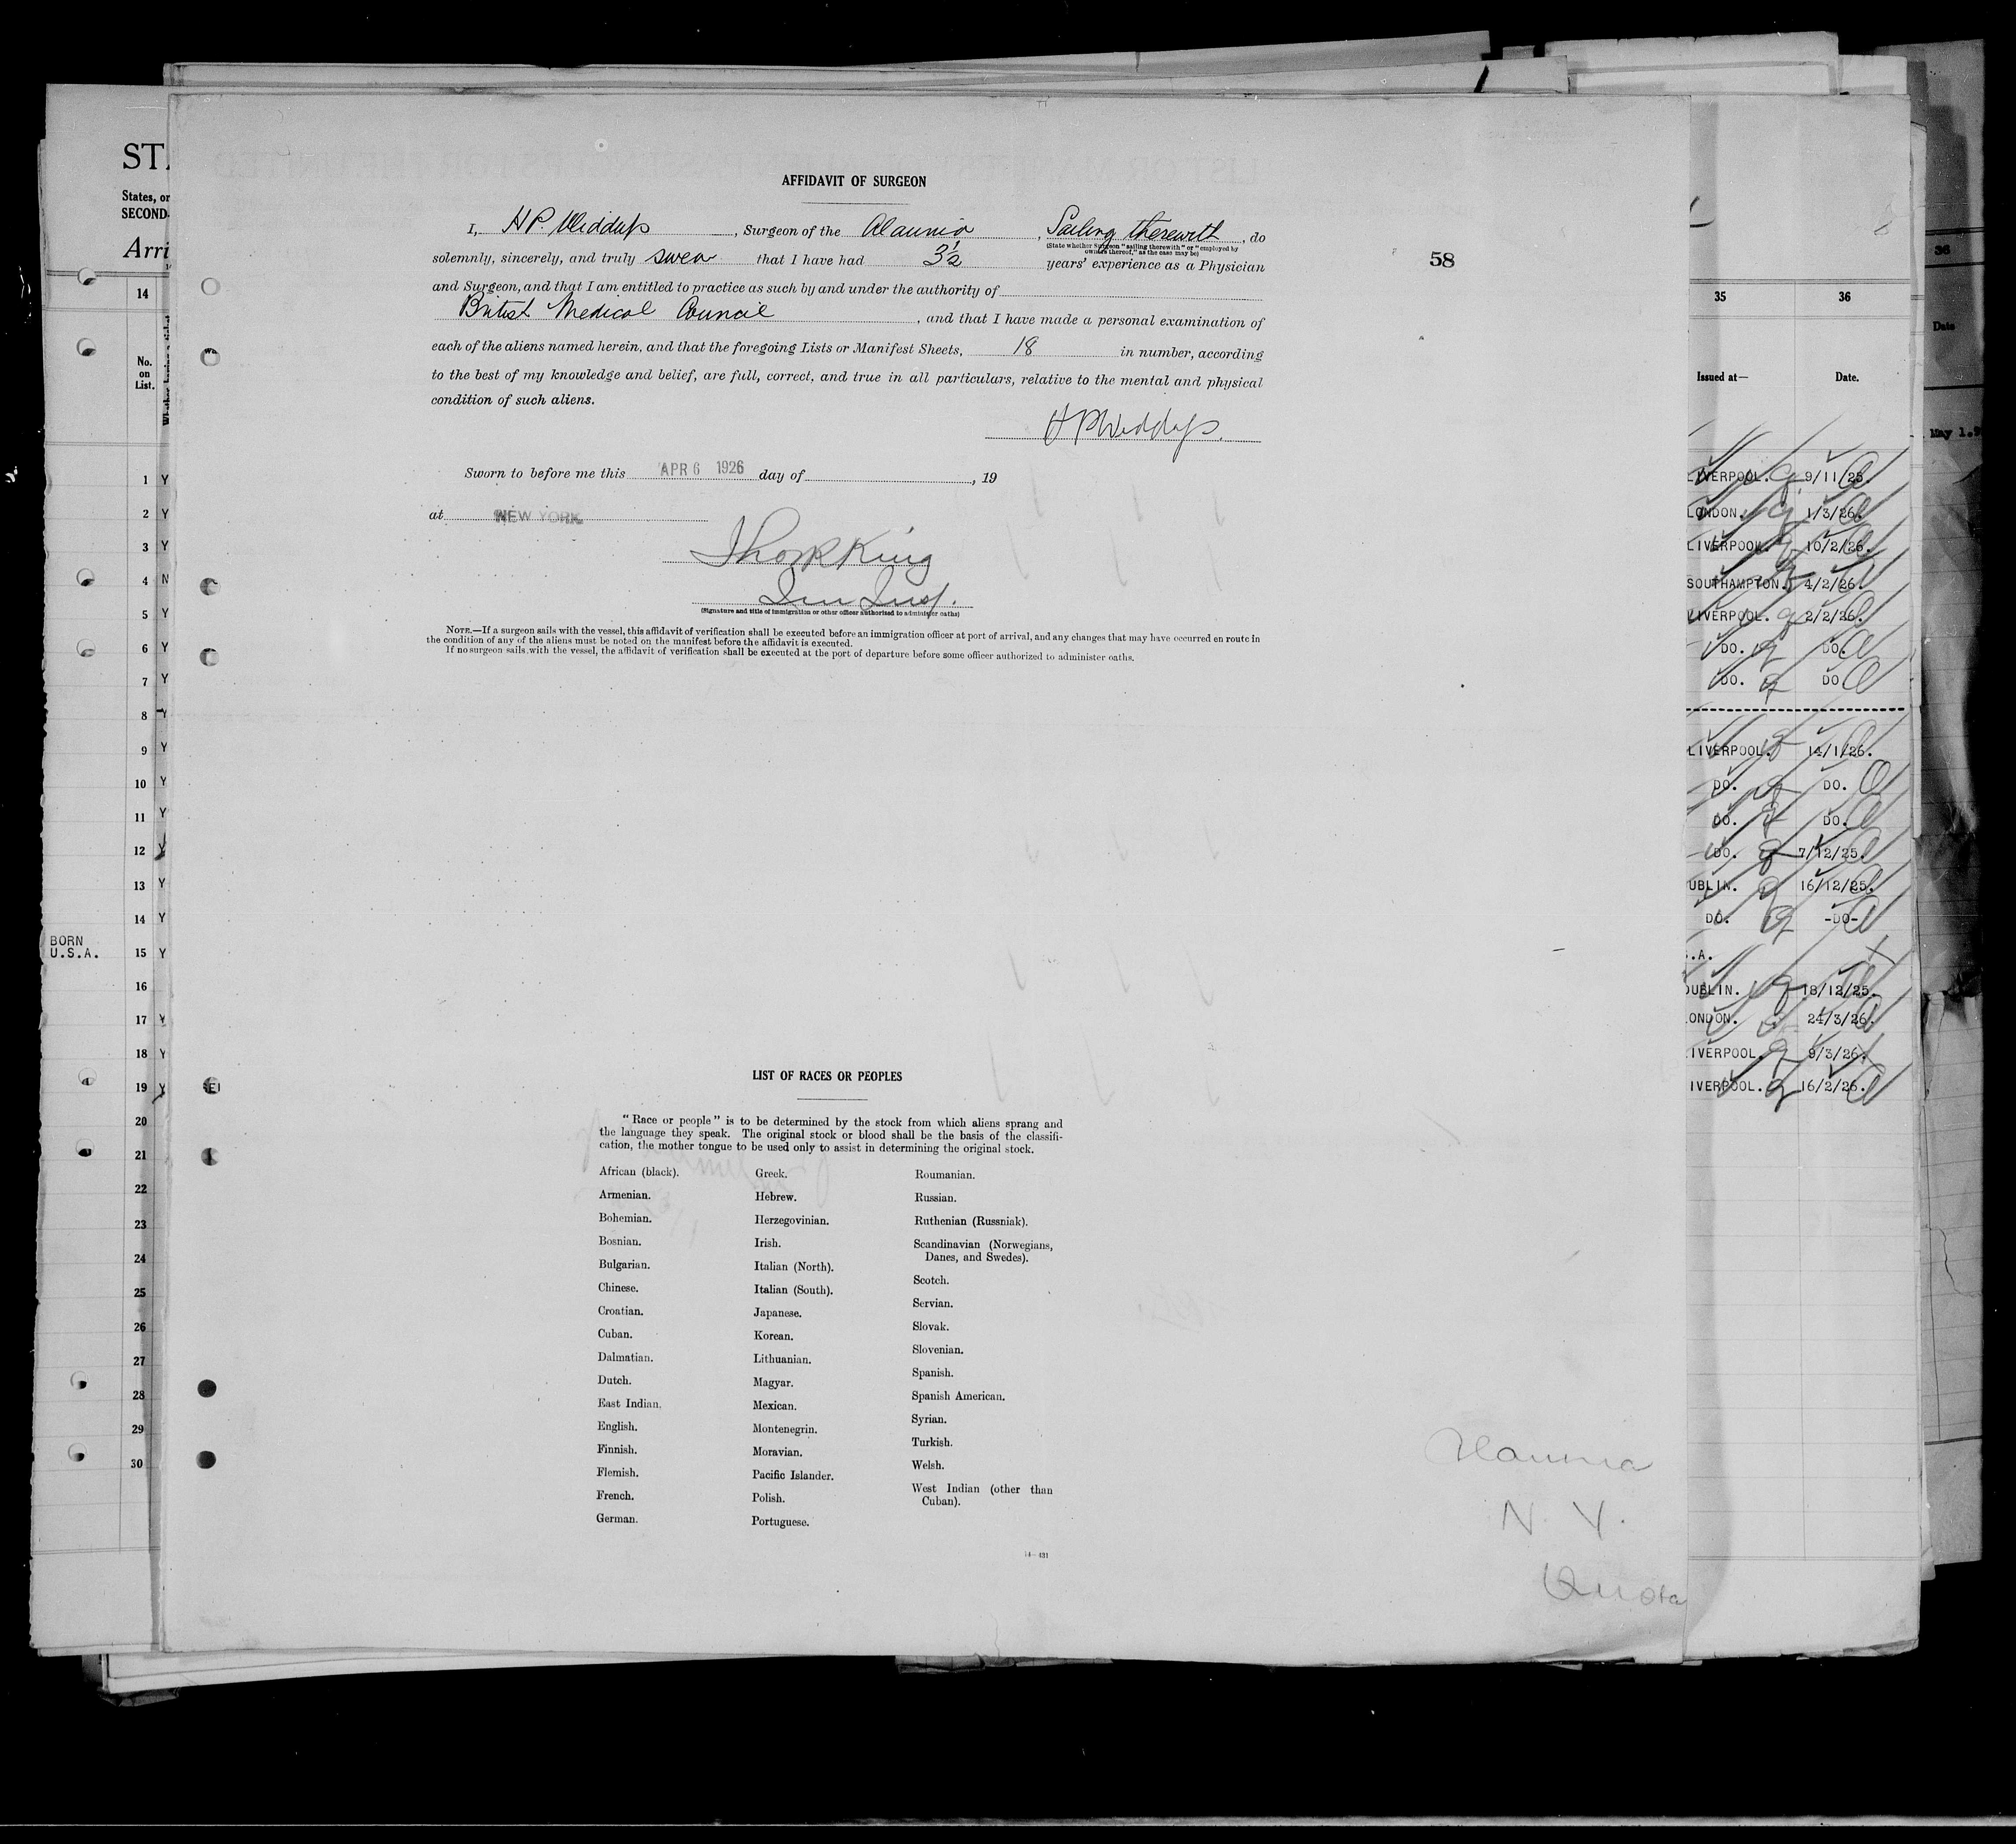 AFFIDAVIT OF SURGEON
I, H P. Widdup, Surgeon of the Alaunia, Sailing therewith, do
(State whether Surgeon "sailing therewith" or "employed by
owners thereof," as the case may be)
solemnly, sincerely, and truly swear that I have had 3½ years' experience as a Physician
and Surgeon, and that I am entitled to practice as such by and under the authority of
British Medical Council, and that I have made a personal examination of
each of the aliens named herein, and that the foregoing Lists or Manifest Sheets, 18 in number, according
to the best of my knowledge and belief, are full, correct, and true in all particulars, relative to the mental and physical
condition of such aliens.
58
Sworn to before me this APR 6 1926 day of , 19
at NEW YORK
King
Imm Insp.
(Signature and title of immigration or other officer authorized to administer oaths)
NOTE.—If a surgeon sails with the vessel, this affidavit of verification shall be executed before an immigration officer at port of arrival, and any changes that may have occurred en route in
the condition of any of the aliens must be noted on the manifest before the affidavit is executed.
If no surgeon sails with the vessel, the affidavit of verification shall be executed at the port of departure before some officer authorized to administer oaths.
LIST OF RACES OR PEOPLES
"Race or people" is to be determined by the stock from which aliens sprang and
the language they speak. The original stock or blood shall be the basis of the classifi-
cation, the mother tongue to be used only to assist in determining the original stock.
African (black).
Armenian.
Bohemian.
Bosnian.
Bulgarian.
Chinese.
Croatian.
Cuban.
Dalmatian.
Dutch.
East Indian.
English.
Finnish.
Flemish.
French.
German.
Greek.
Hebrew.
Herzegovinian.
Irish.
Italian (North).
Italian (South).
Japanese.
Korean.
Lithuanian.
Magyar.
Mexican.
Montenegrin.
Moravian.
Pacific Islander.
Polish.
Portuguese.
Roumanian.
Russian.
Ruthenian (Russniak).
Scandinavian (Norwegians,
Danes, and Swedes).
Scotch.
Servian.
Slovak.
Slovenian.
Spanish.
Spanish American.
Syrian.
Turkish.
Welsh.
West Indian (other than
Cuban).
14—431
Alaunia
N. Y.
Quota
STA
States, or
SECOND-
Arri
14
No.
on
List.
1 Y
2 Y
3 Y
4 N
5 Y
6 Y
7 Y
8 Y
9 Y
10 Y
11 Y
12 Y
13 Y
14 Y
BORN
U.S.A. 15 Y
16
17 Y
18 Y
19 Y
20
21
22
23
24
25
26
27
28
29
30
35 36
Issued at— Date.
LIVERPOOL. 9/11/25.
LONDON. 1/3/26.
LIVERPOOL. 10/2/26.
SOUTHAMPTON. 4/2/26.
LIVERPOOL. 2/2/26.
DO. DO.
DO. DO
LIVERPOOL. 14/1/26.
DO. DO.
DO. DO.
DO. 7/12/25.
UBLIN. 16/12/25.
DO. -DO-
.A.
DUBLIN. 18/12/25.
ONDON. 24/3/26.
IVERPOOL. 9/3/26.
IVERPOOL. 16/2/26.
36
Date
May 1.9